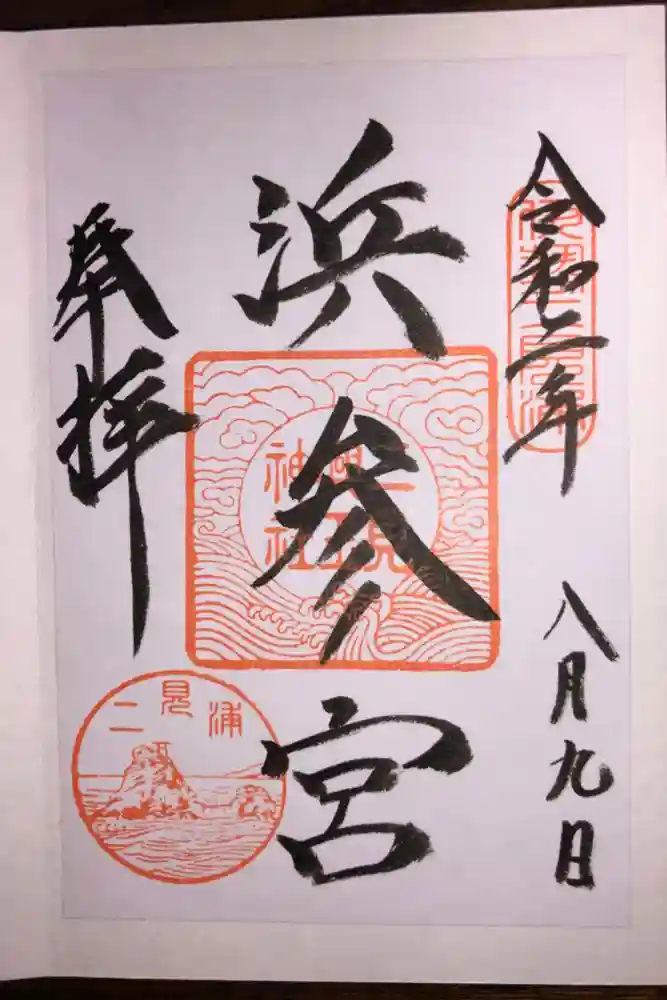 令和二年
八月九日
浜参宮
二見
興玉
神社
奉拝
二見浦